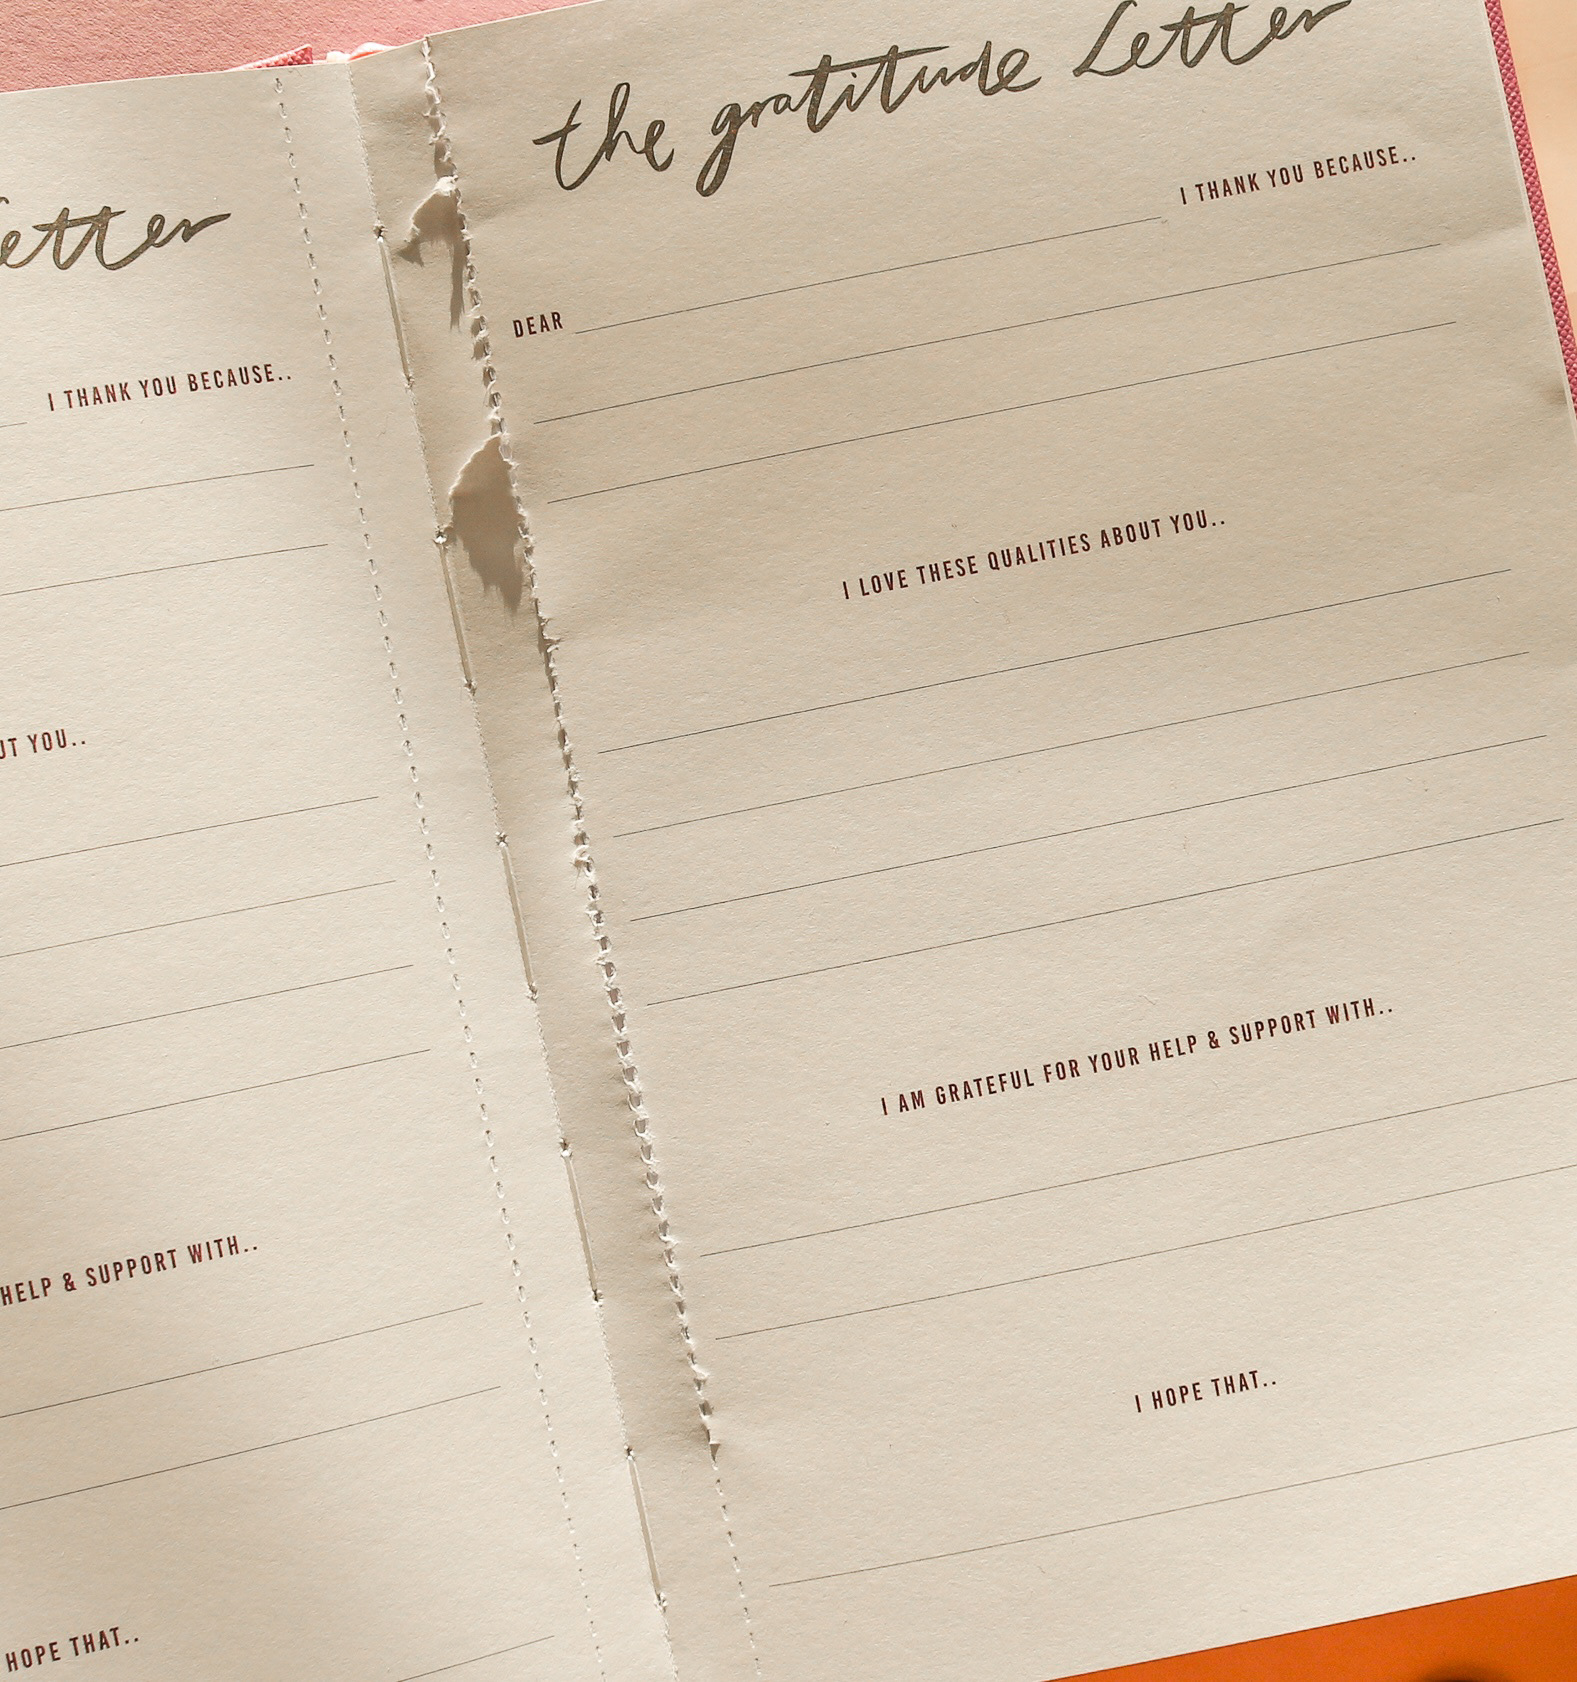 etter
I THANK YOU BECAUSE..
UT YOU..
HELP & SUPPORT WITH..
HOPE THAT..
the gratitude Letter
DEAR I THANK YOU BECAUSE..
I LOVE THESE QUALITIES ABOUT YOU..
I AM GRATEFUL FOR YOUR HELP & SUPPORT WITH..
I HOPE THAT..